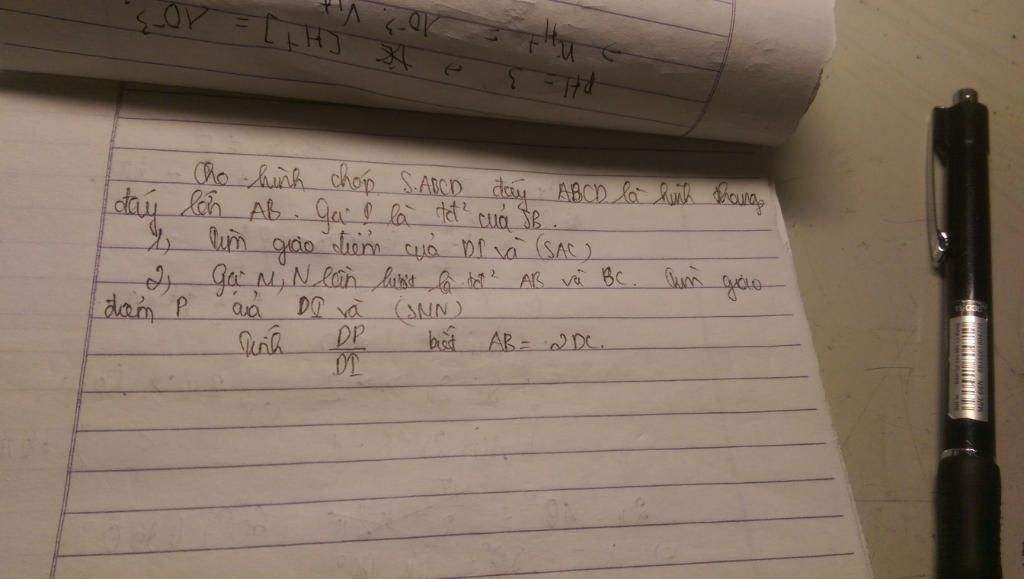 pH = 3 → [H+] = 10-3
→ nH+ = 10-3.
Cho hình chóp S.ABCD đáy ABCD là hình thang,
đáy lớn AB. Gọi I là tđ² của SB.
1, Tìm giao điểm của DI và (SAC)
2, Gọi M, N lần lượt là tđ² AB và BC. Tìm giao
điểm P của DI và (SMN)
Tính DP/DI biết AB = 2DC.